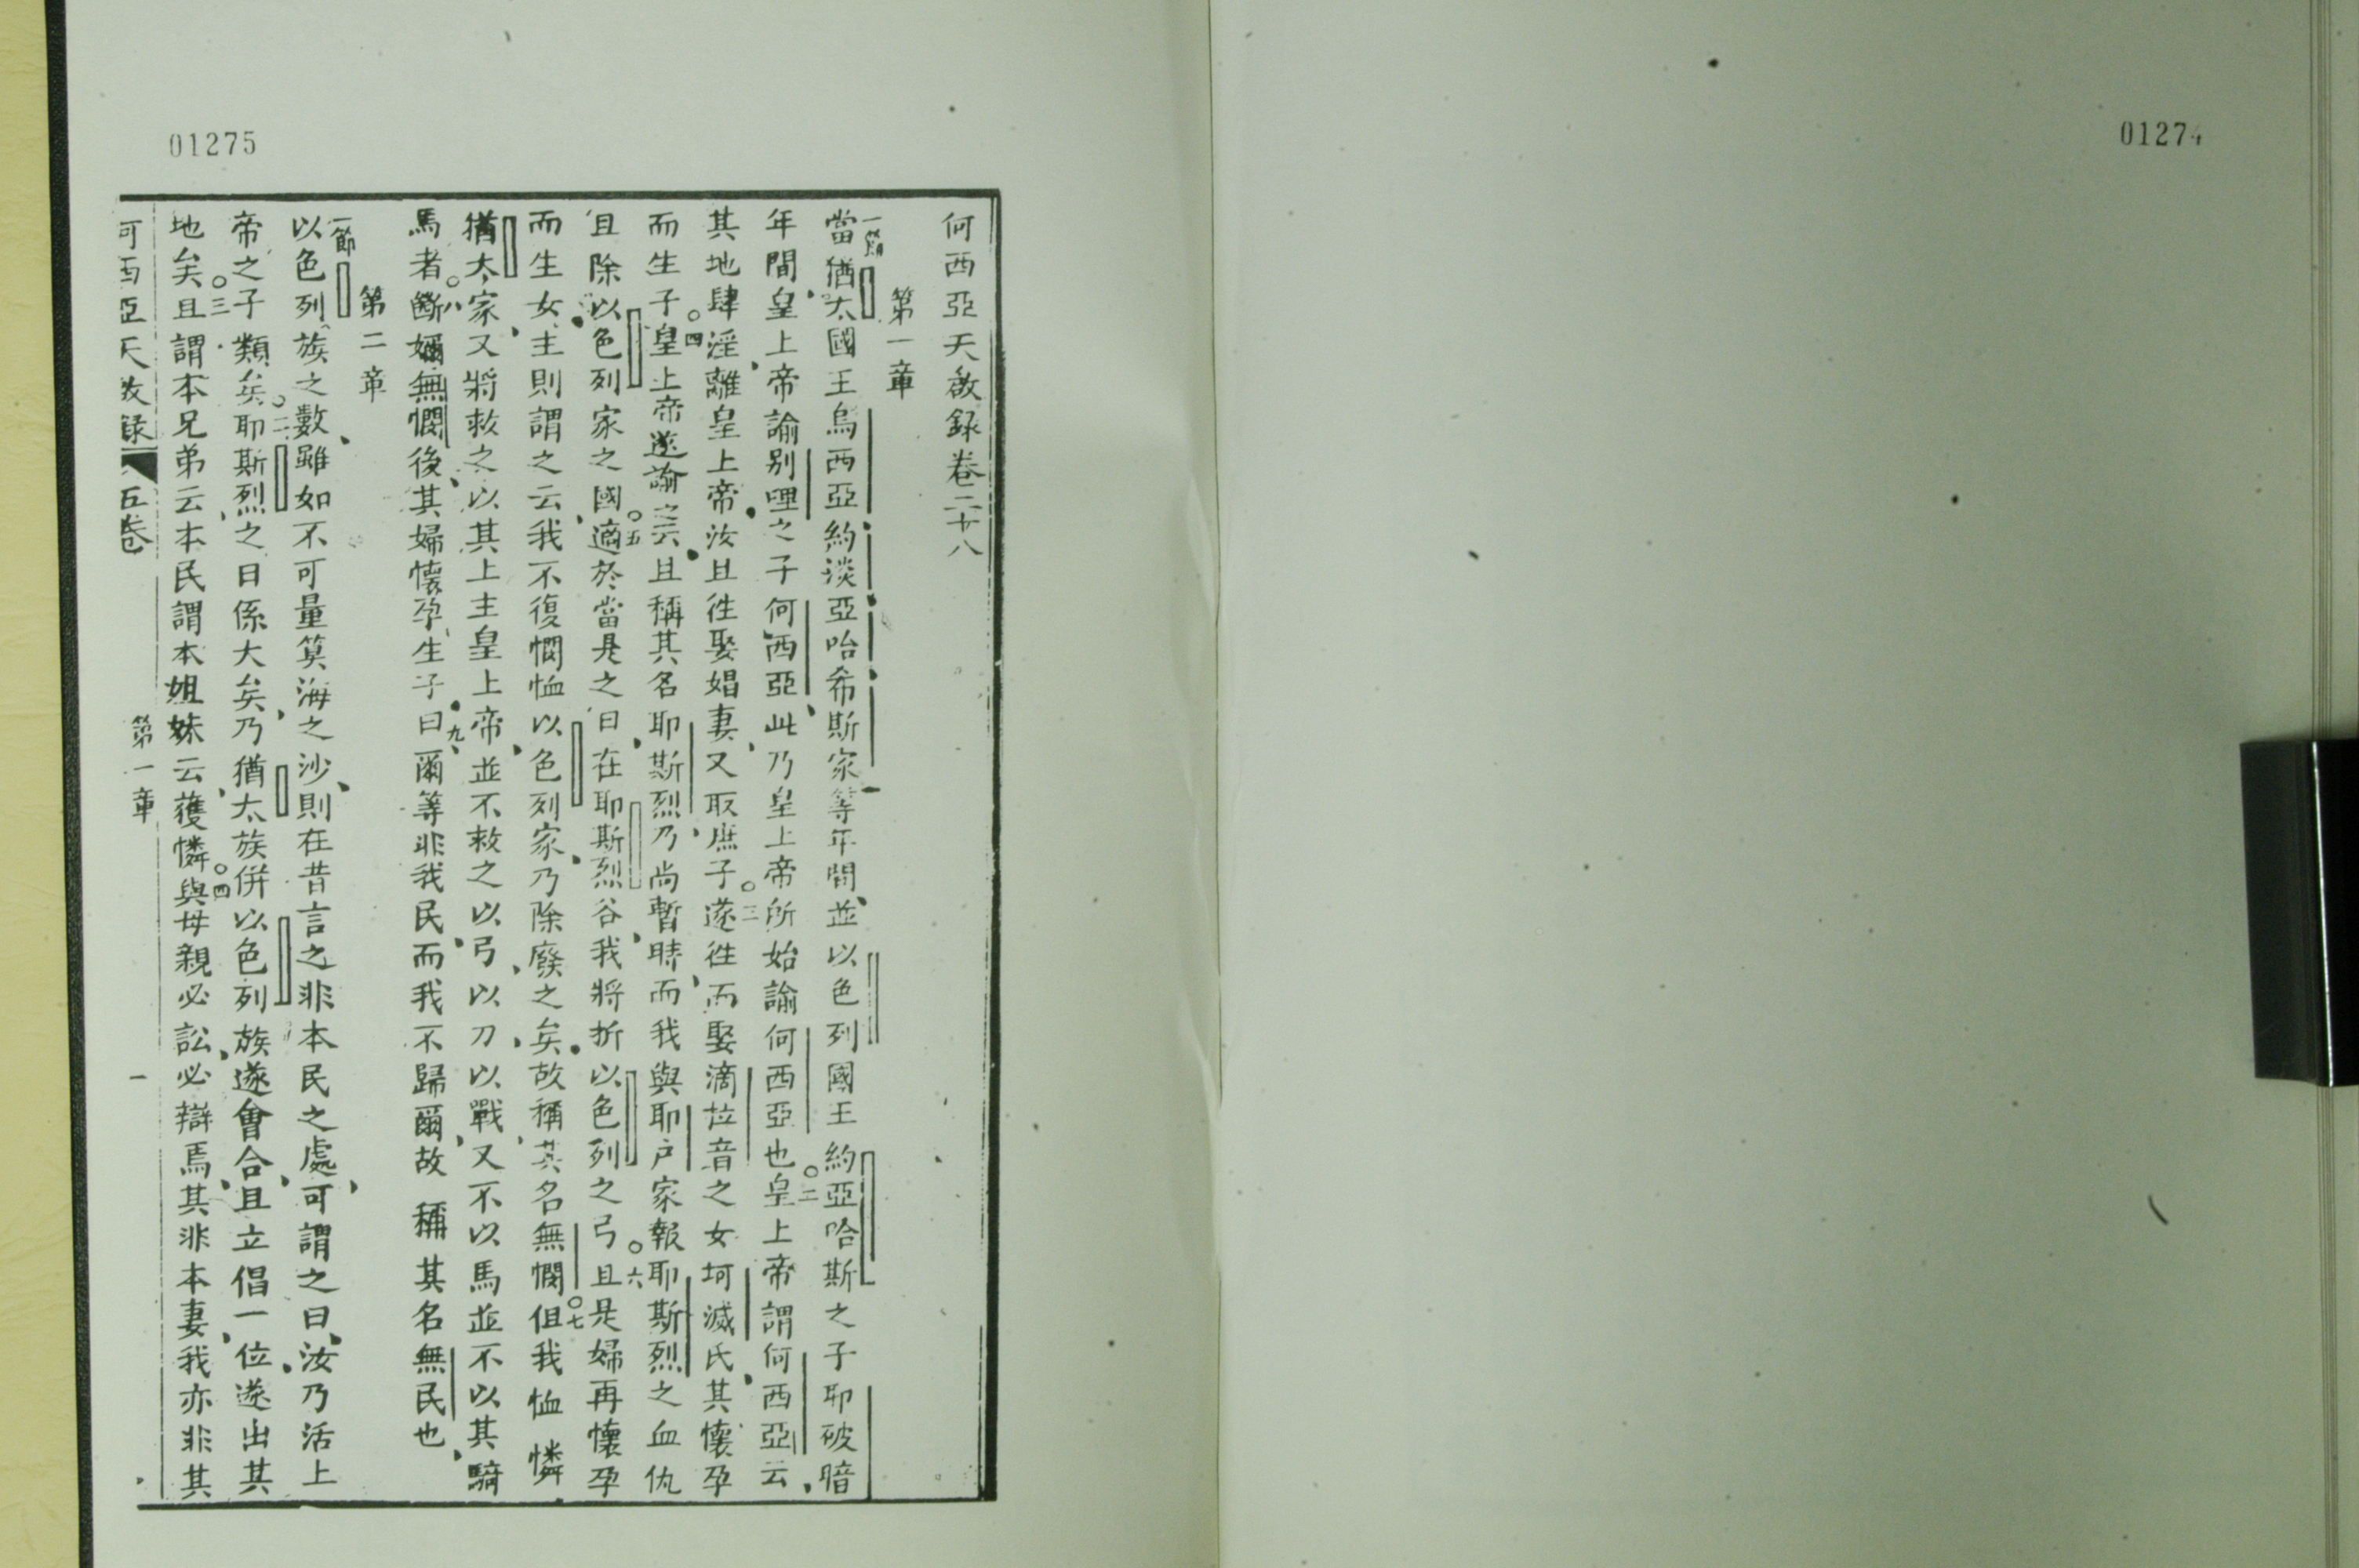 01274
01275
何西亞天啟錄卷二十八
第一章
一節
當猶太國王烏西亞約淡亞哈希斯家等年間並以色列國王約亞哈斯之子耶破暗
年間皇上帝諭別哩之子何西亞此乃皇上帝所始諭何西亞也○二皇上帝謂何西亞云
其地肆淫離皇上帝汝且徃娶娼妻又取庶子○三遂徃而娶滴拉音之女坷滅氏其懷孕
而生子○四皇上帝遂諭之云且稱其名耶斯烈乃尚暫時而我與耶戶家報耶斯烈之血仇
且除以色列家之國○五適於當是之日在耶斯烈谷我將折以色列之弓○六且是婦再懷孕
而生女主則謂之云我不復憫恤以色列家乃除廢之矣故稱其名無憫○七伹我恤憐
猶太家又將救之以其上主皇上帝並不救之以弓以刀以戰又不以馬並不以其騎
馬者○八斷嬭無憫後其婦懷孕生子九曰爾等非我民而我不歸爾故稱其名無民也
第二章
一節
以色列族之數雖如不可量算海之沙則在昔言之非本民之處可謂之曰汝乃活上
帝之子類矣○二耶斯烈之日係大矣乃猶太族併以色列族遂會合且立倡一位遂出其
地矣○三且謂本兄弟云本民謂本姐妹云獲憐○四與母親必訟必辯焉其非本妻我亦非其
何西亞天啟錄 五卷 第一章 一